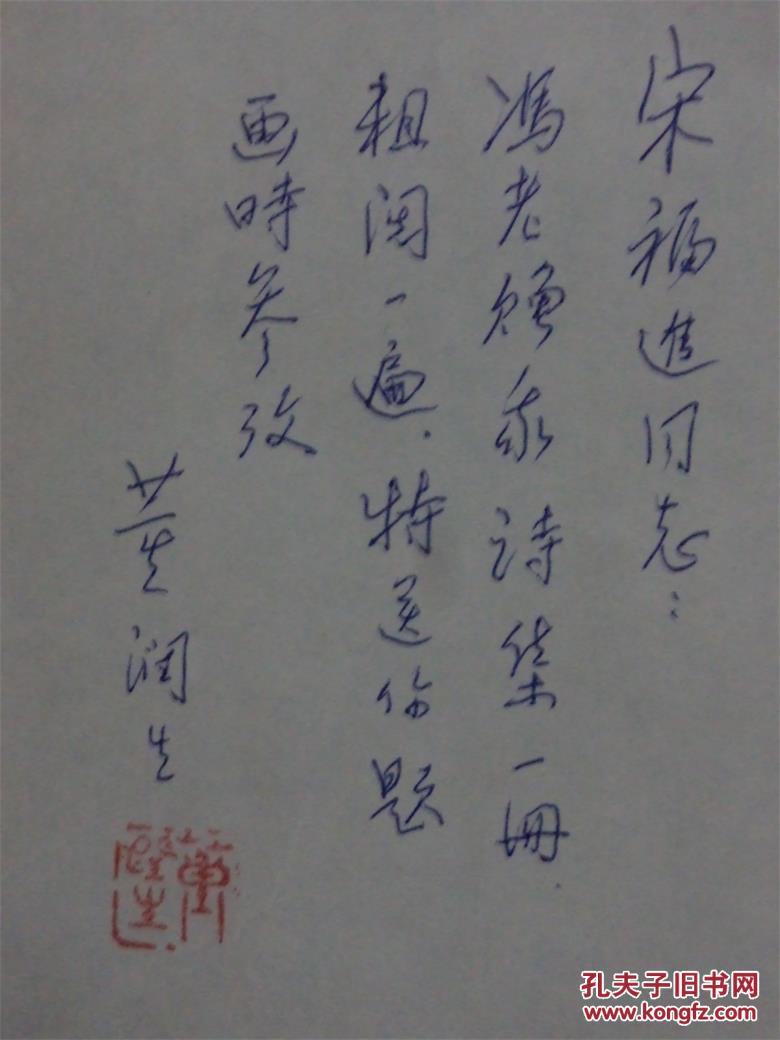 宋福進同志：
馮老赠我诗集一冊
粗阅一遍．特送你题
画時参攷
董润生
孔夫子旧书网
www.kongfz.com